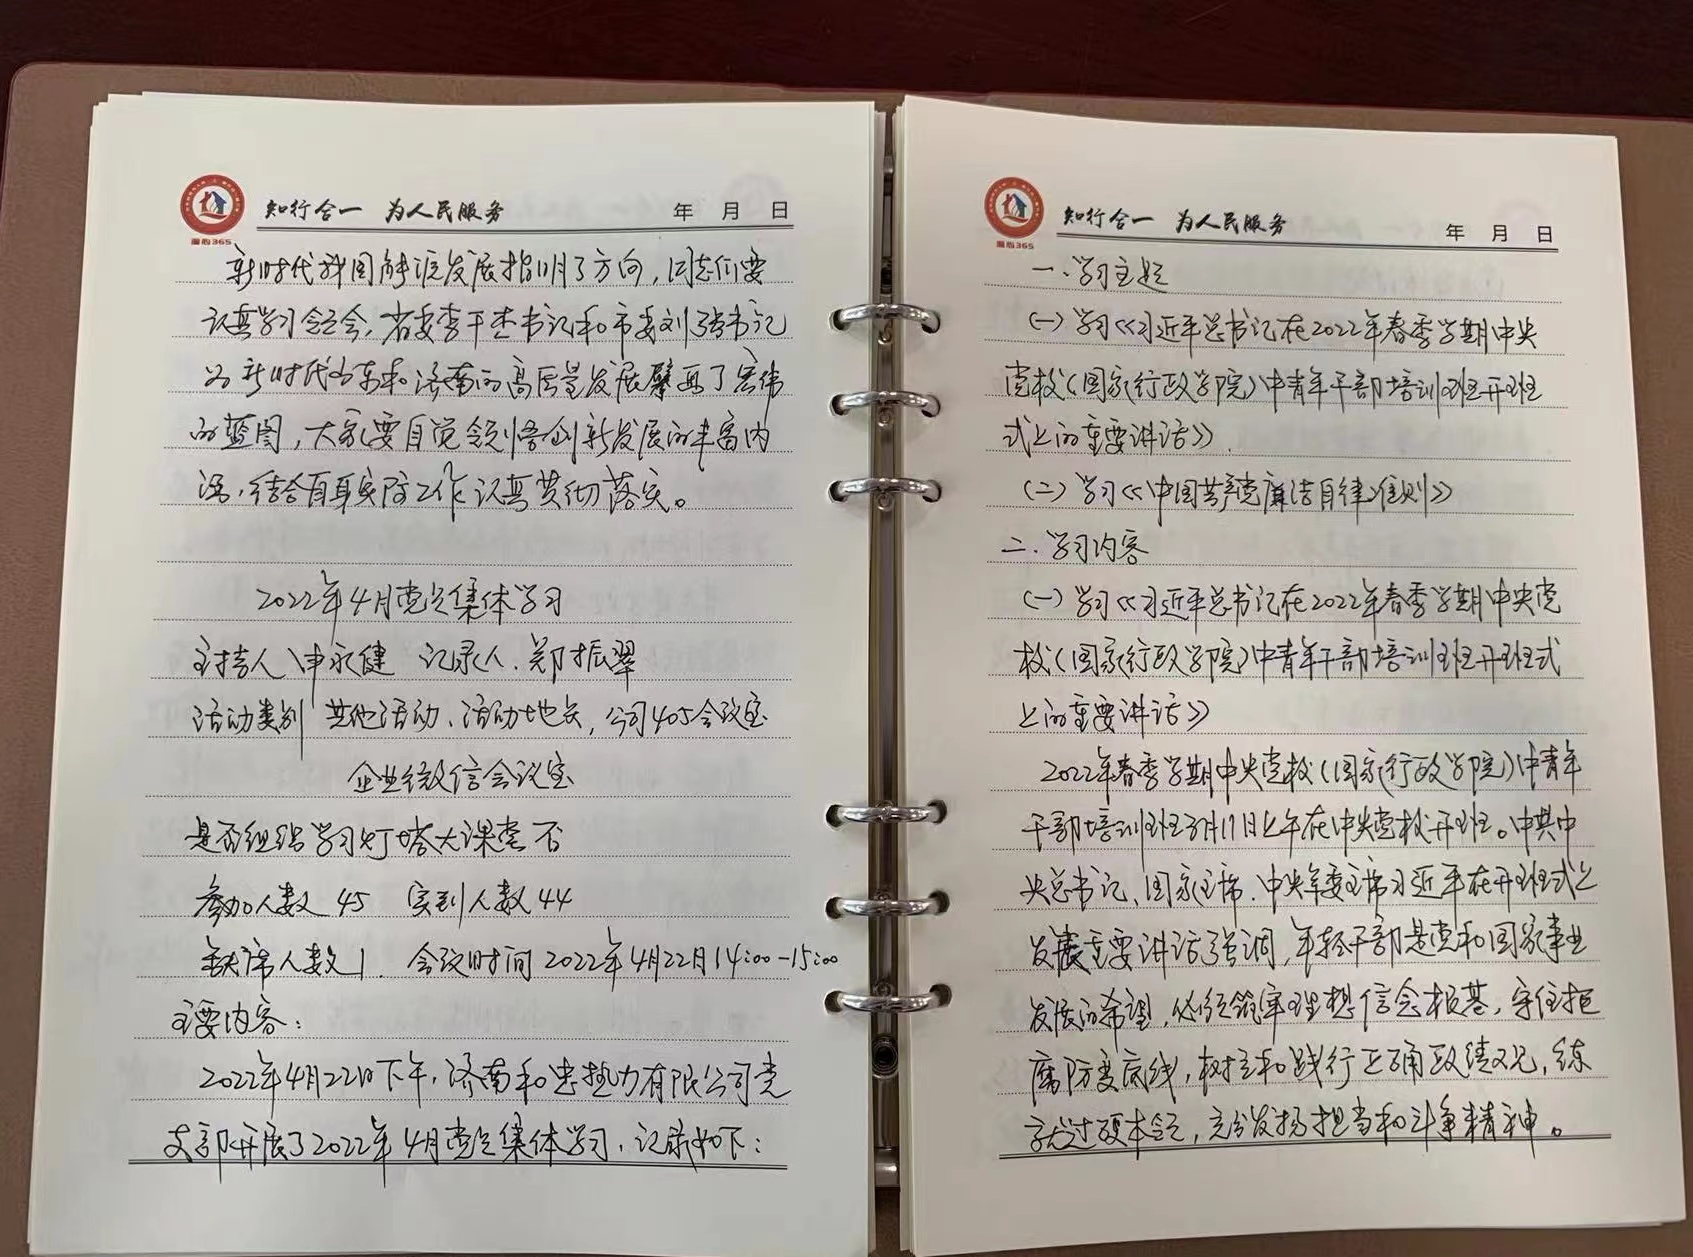 暖心365
知行合一 为人民服务 年 月 日
新时代我国能源发展指明了方向，同志们要
认真学习领会，省委李干杰书记和市委刘强书记
为新时代山东和济南的高质量发展擘画了宏伟
的蓝图，大家要自觉领悟创新发展的丰富内
涵，结合自身实际工作认真贯彻落实。
2022年4月党员集体学习
主持人 申永健 记录人、郑振翠
活动类别 其他活动、活动地点，公司405会议室
企业微信会议室
是否组织学习灯塔大课堂 否
参加人数 45 实到人数 44
缺席人数 1. 会议时间 2022年4月22日14:00-15:00
主要内容：
2022年4月22日下午，济南和忠热力有限公司党
支部开展了2022年4月党员集体学习，记录如下：
暖心365
知行合一 为人民服务 年 月 日
一.学习主题
(一) 学习《习近平总书记在2022年春季学期中央
党校(国家行政学院)中青年干部培训班开班
式上的重要讲话》.
(二) 学习《中国共产党廉洁自律准则》
二.学习内容
(一) 学习《习近平总书记在2022年春季学期中央党
校(国家行政学院)中青年干部培训班开班式
上的重要讲话》
2022年春季学期中央党校(国家行政学院)中青年
干部培训班3月1日上午在中央党校开班。中共中
央总书记、国家主席、中央军委主席习近平在开班式上
发展重要讲话强调，年轻干部是党和国家事业
发展的希望，必须筑牢理想信念根基，守住拒
腐防变底线，树立和践行正确政绩观，练
就过硬本领，充分发扬担当和斗争精神。